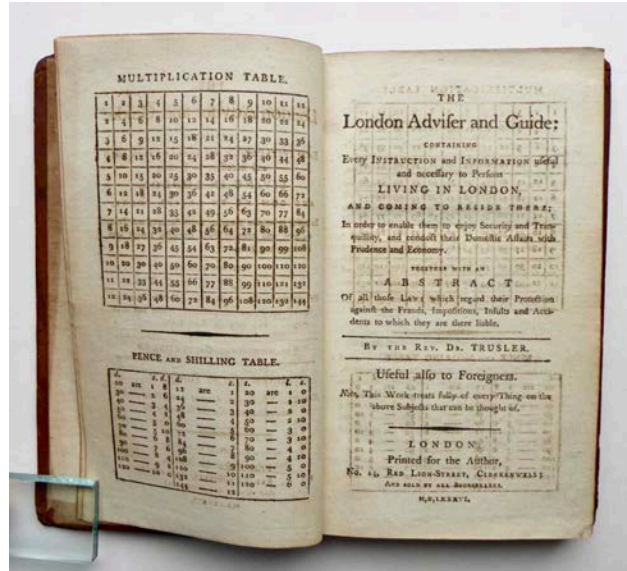 MULTIPLICATION TABLE.
1 2 3 4 5 6 7 8 9 10 11 12
2 4 6 8 10 12 14 16 18 20 22 24
3 6 9 12 15 18 21 24 27 30 33 36
4 8 12 16 20 24 28 32 36 40 44 48
5 10 15 20 25 30 35 40 45 50 55 60
6 12 18 24 30 36 42 48 54 60 66 72
7 14 21 28 35 42 49 56 63 70 77 84
8 16 24 32 40 48 56 64 72 80 88 96
9 18 27 36 45 54 63 72 81 90 99 108
10 20 30 40 50 60 70 80 90 100 110 120
11 22 33 44 55 66 77 88 99 110 121 132
12 24 36 48 60 72 84 96 108 120 132 144
PENCE AND SHILLING TABLE.
d. s. d. d. s. s. l. s.
20 are 1 8 12 are 1 20 are 1 0
30 — 2 6 24 — 2 30 — 1 10
40 — 3 4 36 — 3 40 — 2 0
50 — 4 2 48 — 4 50 — 2 10
60 — 5 0 60 — 5 60 — 3 0
70 — 5 10 72 — 6 70 — 3 10
80 — 6 8 84 — 7 80 — 4 0
90 — 7 6 96 — 8 90 — 4 10
100 — 8 4 108 — 9 100 — 5 0
110 — 9 2 120 — 10 110 — 5 10
120 — 10 0 132 — 11 120 — 6 0
144 — 12
THE
London Adviſer and Guide:
CONTAINING
Every INSTRUCTION and INFORMATION uſeful
and neceſſary to Perſons
LIVING IN LONDON,
AND COMING TO RESIDE THERE;
In order to enable them to enjoy Security and Tran-
quillity, and conduct their Domeſtic Affairs with
Prudence and Economy.
TOGETHER WITH AN
ABSTRACT
Of all thoſe LAWS which regard their Protection
againſt the Frauds, Impoſitions, Inſults and Acci-
dents to which they are there liable.
BY THE REV. DR. TRUSLER.
Uſeful alſo to Foreigners.
Note, This Work treats fully of every Thing on the
above Subjects that can be thought of.
LONDON,
Printed for the Author,
No. 14, RED LION-STREET, CLERKENWELL;
AND SOLD BY ALL BOOKSELLERS.
M,D,LXXXVI.